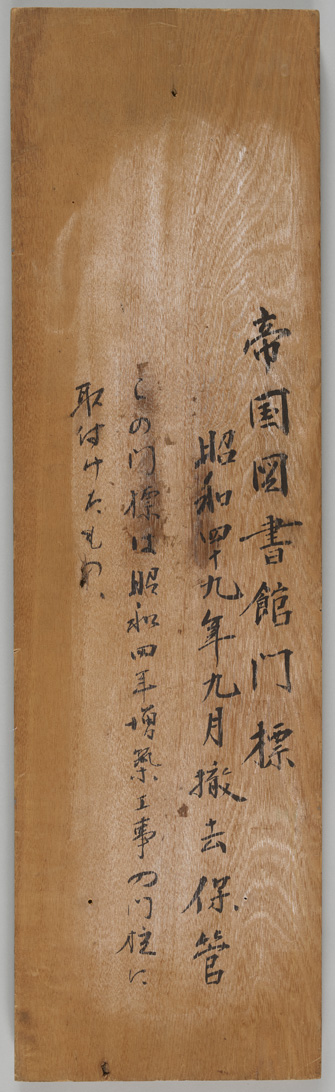 帝国図書館门標
昭和四十九年九月撤去保管
この门標は昭和四年増築工事の门柱に
取付けたもの、